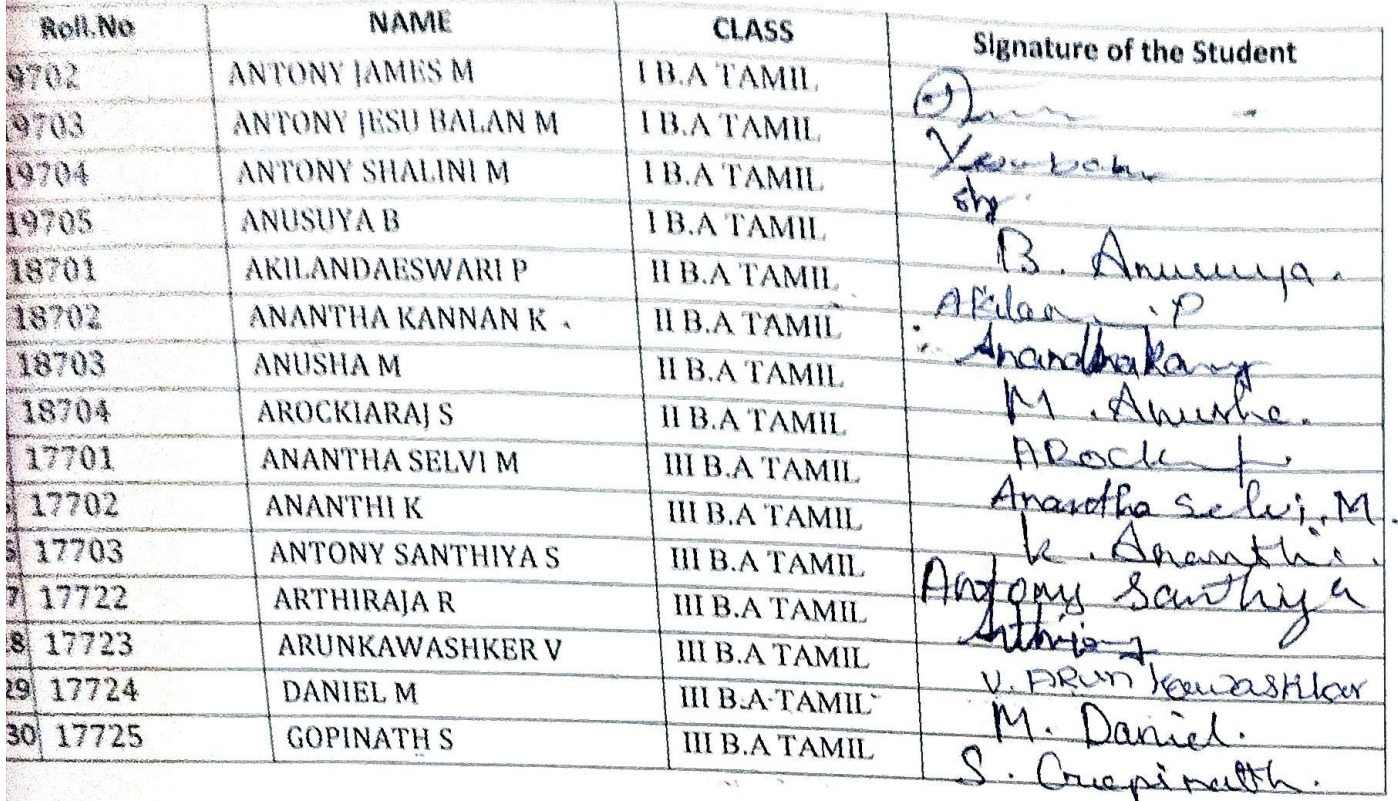 Roll.No NAME CLASS Signature of the Student
9702 ANTONY JAMES M I B.A TAMIL
9703 ANTONY JESU BALAN M I B.A TAMIL
19704 ANTONY SHALINI M I B.A TAMIL
19705 ANUSUYA B I B.A TAMIL B. Anusuya.
18701 AKILANDAESWARI P II B.A TAMIL P
18702 ANANTHA KANNAN K II B.A TAMIL
18703 ANUSHA M II B.A TAMIL M. Anusha.
18704 AROCKIARAJ S II B.A TAMIL
17701 ANANTHA SELVI M III B.A TAMIL Anantha Selvi. M.
17702 ANANTHI K III B.A TAMIL K. Ananthi.
17703 ANTONY SANTHIYA S III B.A TAMIL Antony Santhiya
7 17722 ARTHIRAJA R III B.A TAMIL
8 17723 ARUNKAWASHKER V III B.A TAMIL V. ARUN
29 17724 DANIEL M III B.A TAMIL M. Daniel.
30 17725 GOPINATH S III B.A TAMIL S.